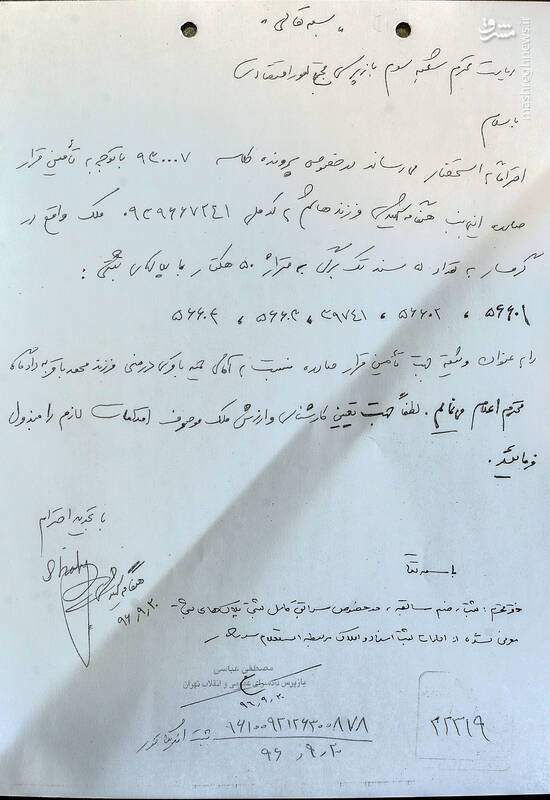 بسمه تعالی
ریاست محترم شعبه سوم بازپرسی مجتمع امور اقتصادی
با سلام
احتراماً به استحضار می رساند در خصوص پرونده کلاسه ۹۳۰۰۰۷ با توجه به تأمین قرار
صادره اینجانب هنگامه فرزند هاشم به کدملی ۰۹۳۹۶۶۷۲۴۱ ملک واقع در
گرمسار به تعداد ۵ سند تک برگی به متراژ ۵۰ هکتار با پلاکهای ثبتی :
۵۶۶۰۱ ، ۵۶۶۰۲ ، ۳۹۷۴۱ ، ۵۶۶۰۳ ، ۵۶۶۰۴
را به عنوان وثیقه جهت تأمین قرار صادره نسبت به آقای حمید باقری درمنی فرزند محمدباقر به دادگاه
محترم اعلام می نمایم . لطفاً جهت تعیین کارشناسی و ارزش ملک موصوف اقدامات لازم را مبذول
فرمائید .
با تجدید احترام
هنگامه
۹۶,۹,۲۰
باسمه تعالی
دفتر محترم : ثبت ، ضمیمه سابقه ، در خصوص کامل ثبتی پلاک های
از اداره ثبت اسناد و املاک مربوطه استعلام
مصطفی عباسی
بازپرس دادسرای عمومی و انقلاب تهران
۹۶,۹,۲۰
۹۶۱۰۰۹۲۱۲۶۳۰۰۸۷۸ ثبت
۹۶,۹,۲۰
۴۲۲۱۹
مشرق
mashreghnews.ir